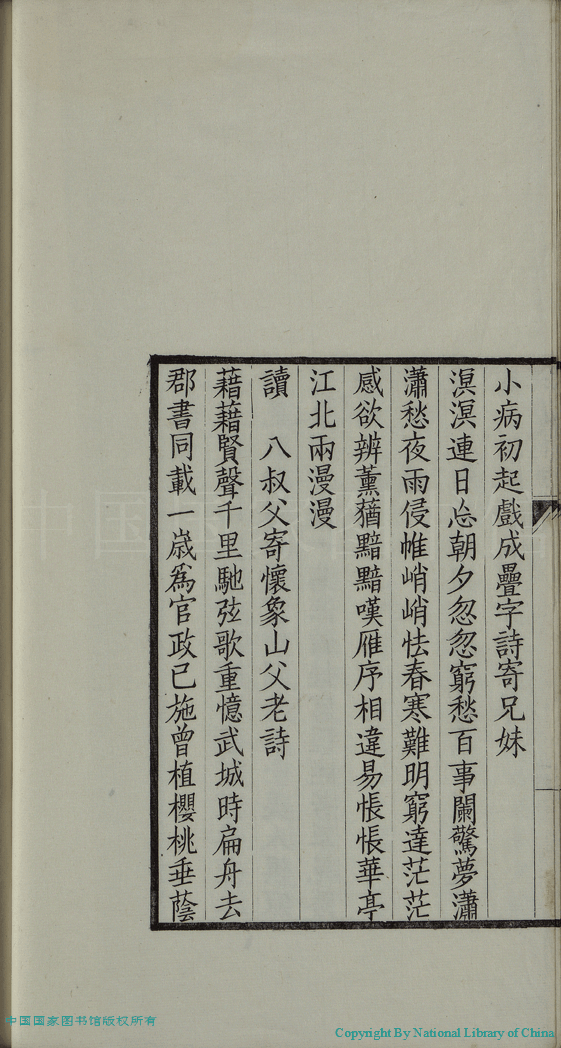 小病初起戲成疊字詩寄兄妹
溟溟連日忘朝夕忽忽窮愁百事闌驚夢瀟
瀟愁夜雨侵帷峭峭怯春寒難明窮達茫茫
感欲辨薰蕕黯黯嘆雁序相違易悵悵華亭
江北兩漫漫
讀　八叔父寄懷象山父老詩
藉藉賢聲千里馳弦歌重憶武城時扁舟去
郡書同載一歲爲官政已施曾植櫻桃垂蔭
中国国家图书馆版权所有
Copyright By National Library of China